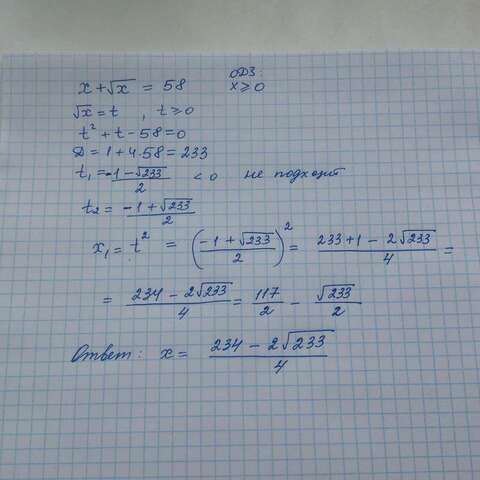 x + √x = 58 ОДЗ: x ≥ 0
√x = t , t ≥ 0
t² + t - 58 = 0
Д = 1 + 4·58 = 233
t₁ = (-1 - √233)/2 < 0 не подходит
t₂ = (-1 + √233)/2
x₁ = t² = ((-1 + √233)/2)² = (233 + 1 - 2√233)/4 =
= (234 - 2√233)/4 = 117/2 - √233/2
Ответ: x = (234 - 2√233)/4